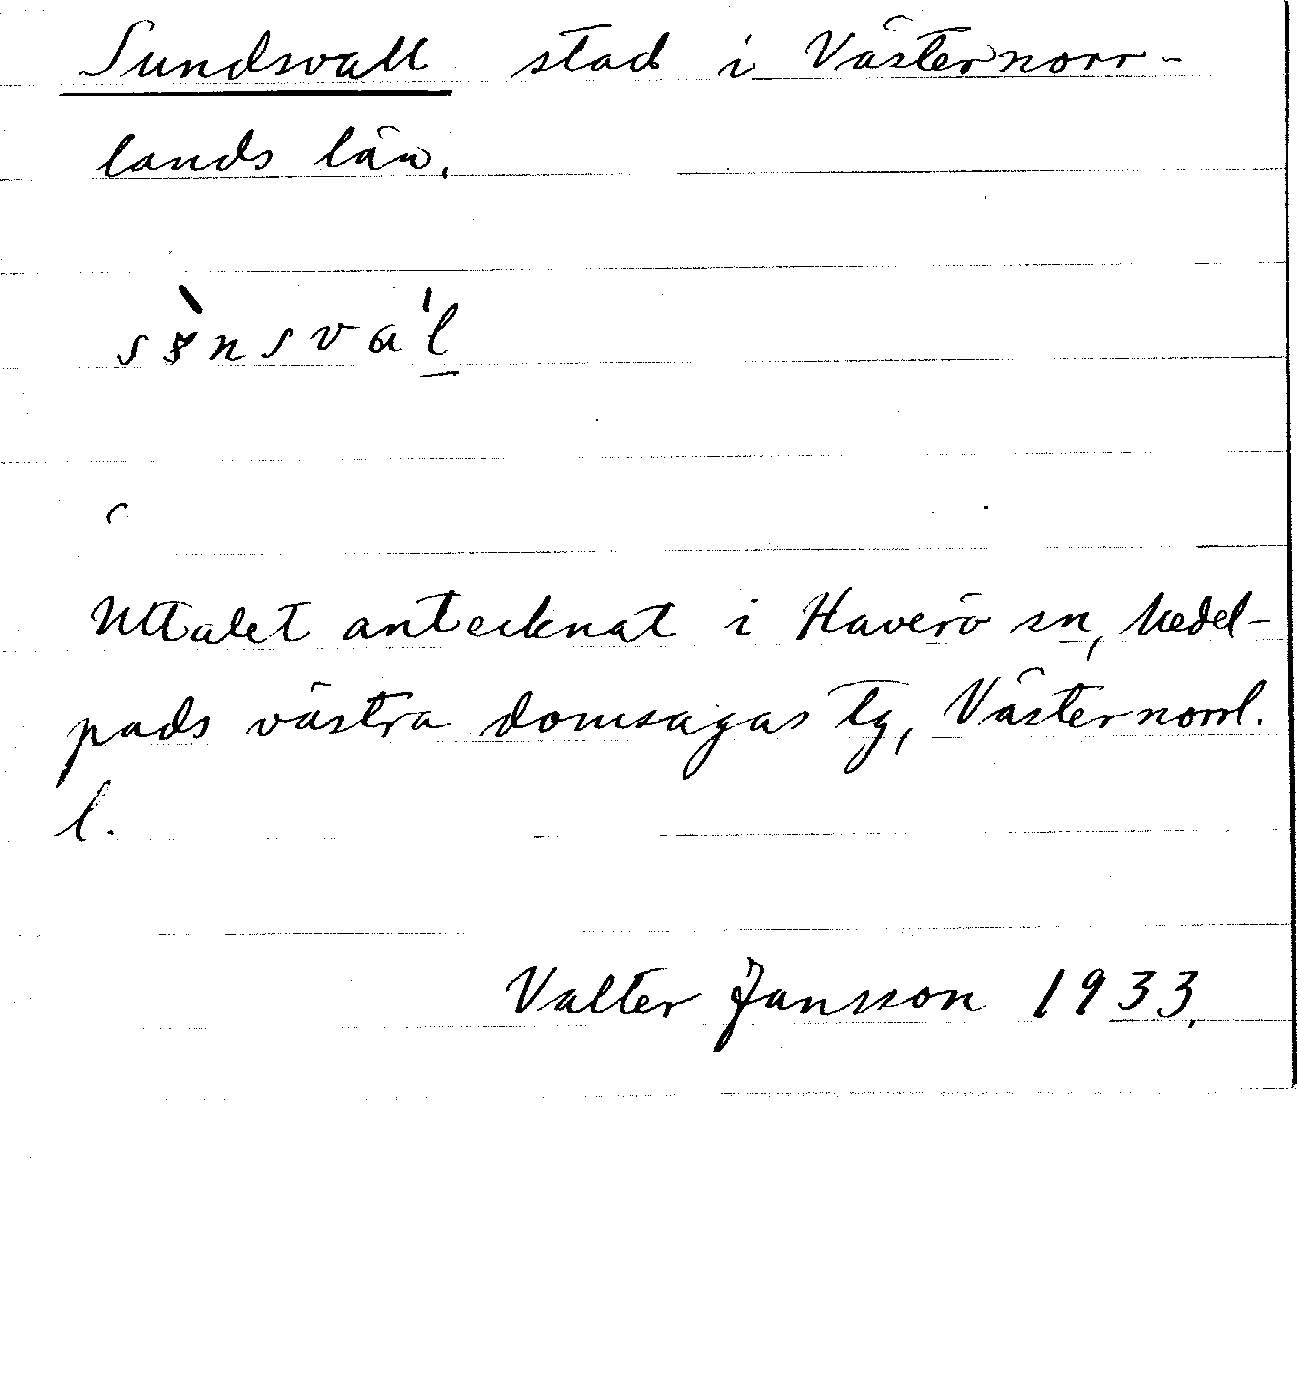 Sundsvall stad i Västernorr-
lands län.
Uttalet antecknat i Haverö sn, Medel-
pads västra domsagas tg, Västernorrl.
l.
Valter Jansson 1933.